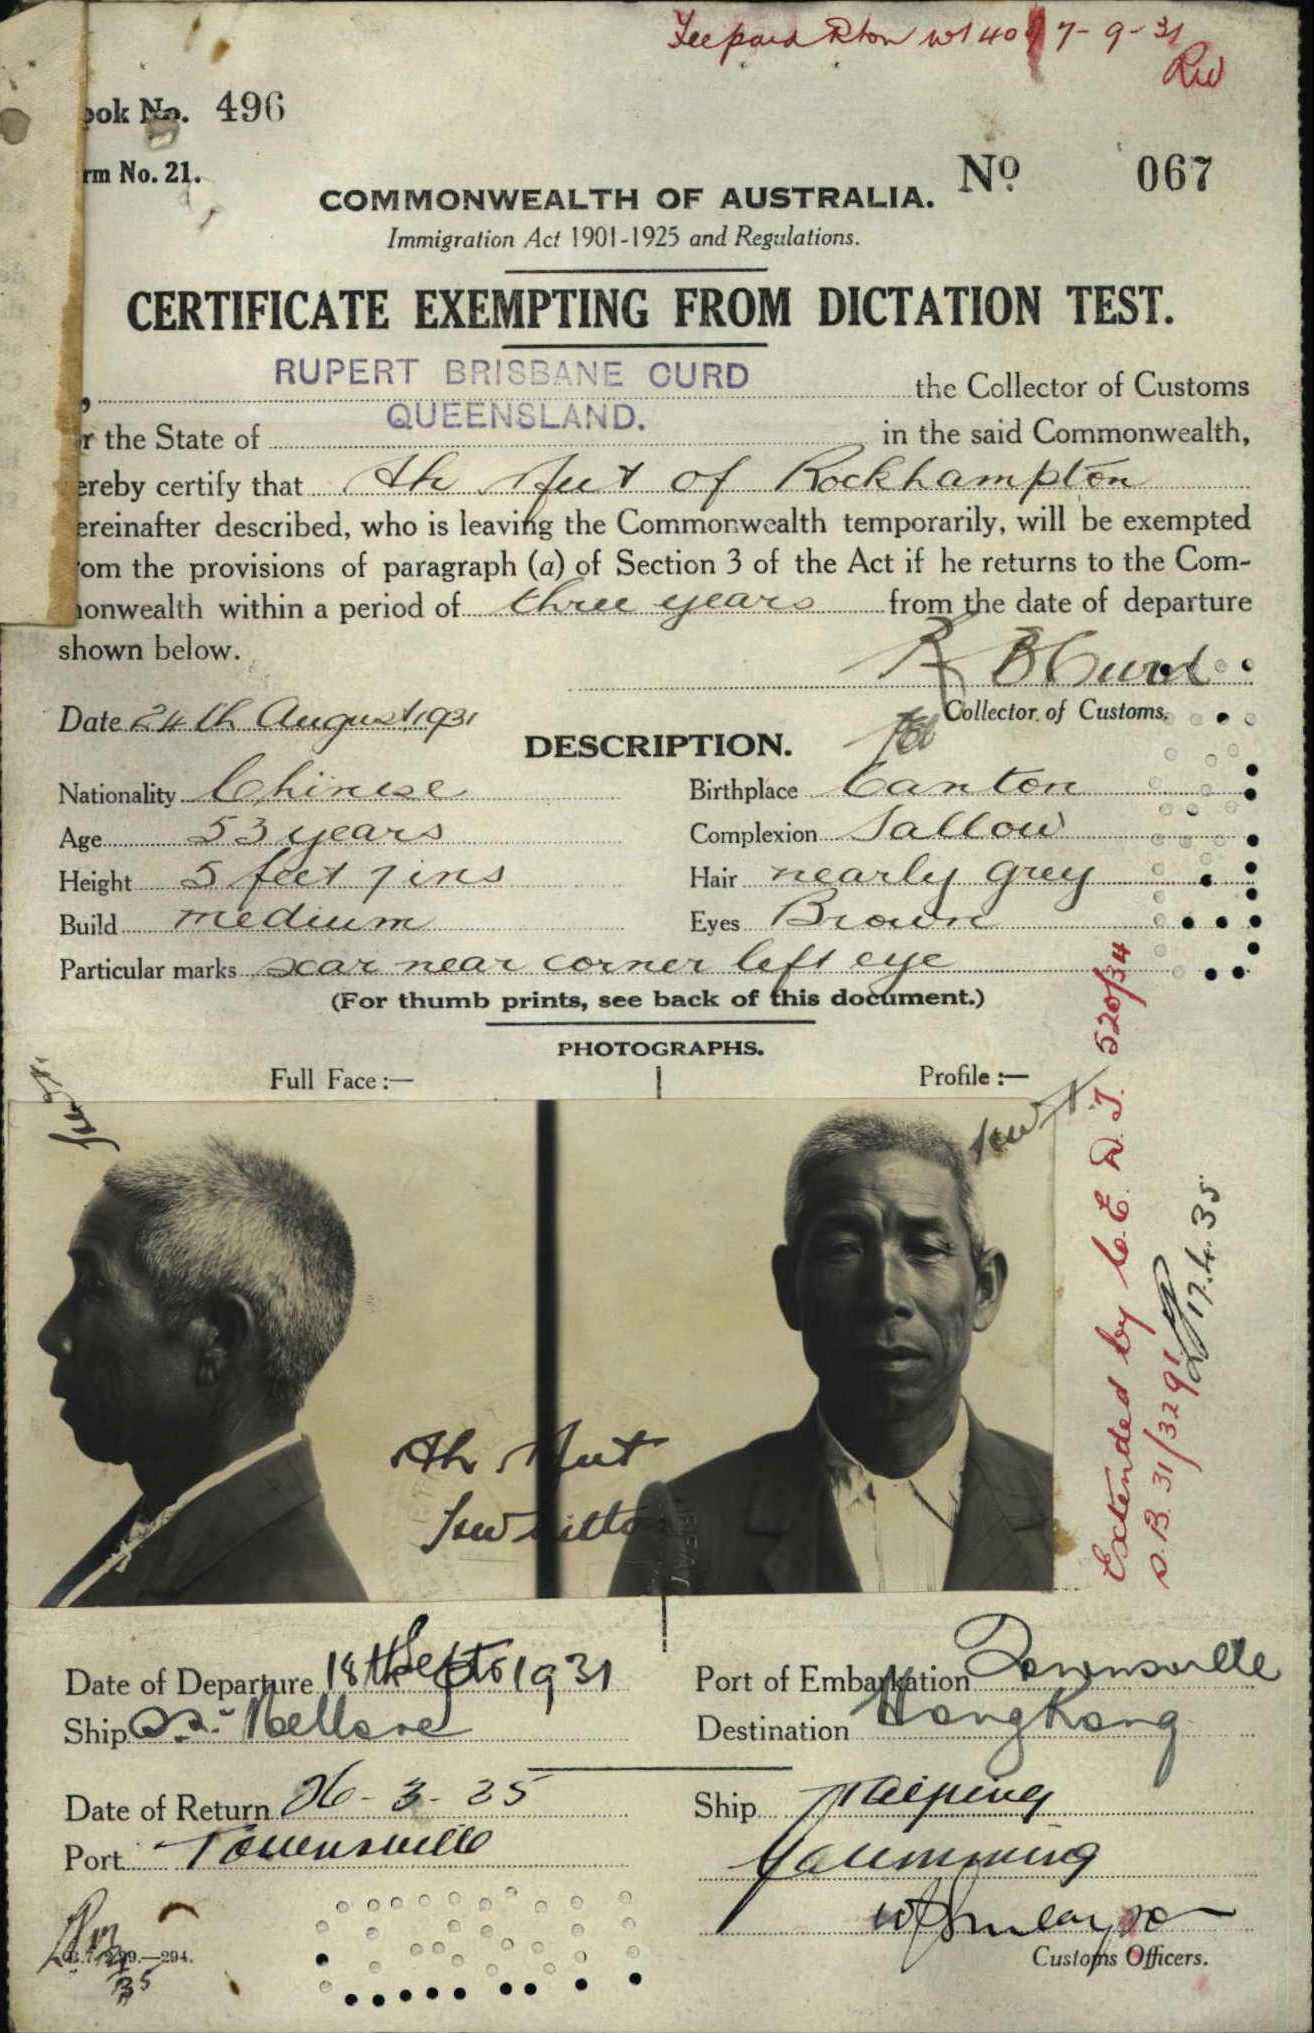 7-9-31
RW
ook No. 496
rm No. 21.
No. 067
COMMONWEALTH OF AUSTRALIA.
Immigration Act 1901-1925 and Regulations.
CERTIFICATE EXEMPTING FROM DICTATION TEST.
RUPERT BRISBANE CURD the Collector of Customs
r the State of QUEENSLAND. in the said Commonwealth,
ereby certify that Ah Hut of Rockhampton
ereinafter described, who is leaving the Commonwealth temporarily, will be exempted
om the provisions of paragraph (a) of Section 3 of the Act if he returns to the Com-
onwealth within a period of three years from the date of departure
shown below.
R B Curd
Collector of Customs.
Date 24th August, 1931
DESCRIPTION.
Nationality Chinese
Birthplace Canton
Age 53 years
Complexion Sallow
Height 5 feet 7 ins
Hair nearly grey
Build medium
Eyes Brown
Particular marks scar near corner left eye
(For thumb prints, see back of this document.)
PHOTOGRAPHS.
Full Face :—
Profile :—
Ah Hut
Extended by C.E.D.T. 520/34
S.B. 31/3291
17.4.35
Date of Departure 18th Sept 1931
Port of Embarkation Townsville
Ship SS. Nellore
Destination Hong Kong
Date of Return 26-3-35
Ship Taiping
Port Townsville
Customs Officers.